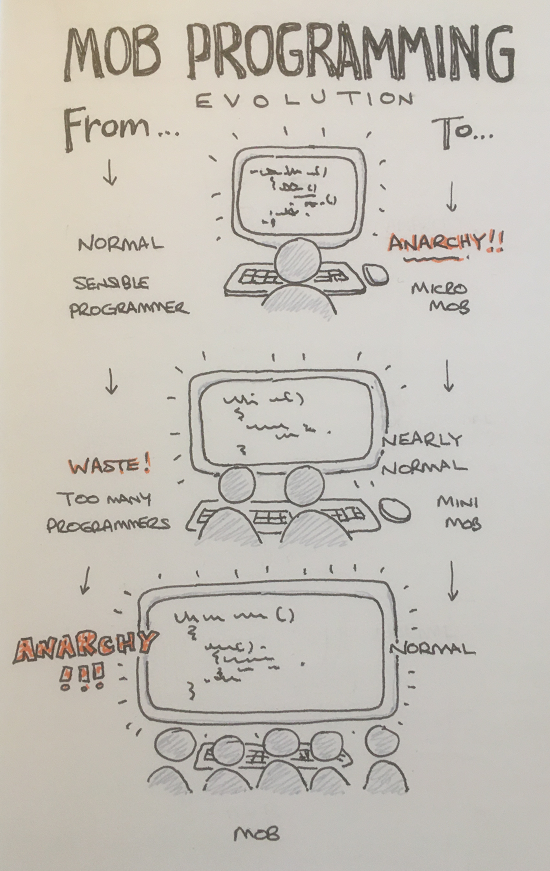 MOB PROGRAMMING
EVOLUTION
From...
To...
NORMAL
SENSIBLE
PROGRAMMER
ANARCHY!!
MICRO
MOB
WASTE!
TOO MANY
PROGRAMMERS
NEARLY
NORMAL
MINI
MOB
ANARCHY
!!!
NORMAL
MOB